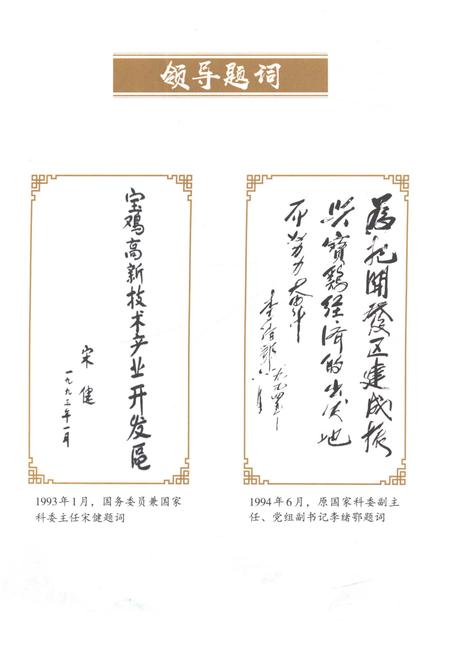 领导题词
宝鸡高新技术产业开发区
宋健
一九九三年一月
1993年1月，国务委员兼国家
科委主任宋健题词
为把開發区建成振
兴寶鷄经济的生长地
而努力奋斗
李绪鄂
1994年6月，原国家科委副主
任、党组副书记李绪鄂题词